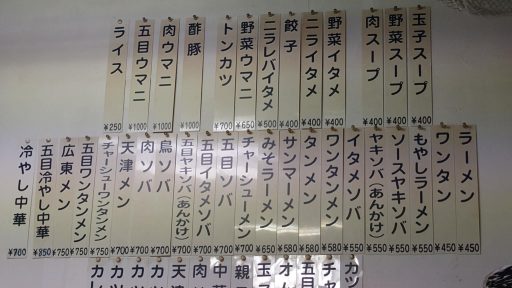 玉子スープ ¥400
野菜スープ ¥400
肉スープ ¥400
野菜イタメ ¥400
ニライタメ ¥400
餃子 ¥400
ニラレバイタメ ¥500
野菜ウマニ ¥650
トンカツ ¥700
酢豚 ¥1000
肉ウマニ ¥1000
五目ウマニ ¥1000
ライス ¥250
ラーメン ¥450
ワンタン ¥450
もやしラーメン ¥550
ソースヤキソバ ¥550
ヤキソバ(あんかけ) ¥550
イタメソバ ¥550
ワンタンメン ¥580
タンメン ¥580
サンマーメン ¥580
みそラーメン ¥650
チャーシューメン ¥700
五目ソバ ¥700
五目イタメソバ ¥700
五目ヤキソバ(あんかけ) ¥700
鳥ソバ ¥700
肉ソバ ¥700
天津メン ¥700
チャーシューワンタンメン ¥750
五目ワンタンメン ¥750
広東メン ¥750
五目冷やし中華 ¥850
冷やし中華 ¥700
カツ
チャ
五目
オム
玉ス
中華
肉
天津
カツ
カツ
カレ